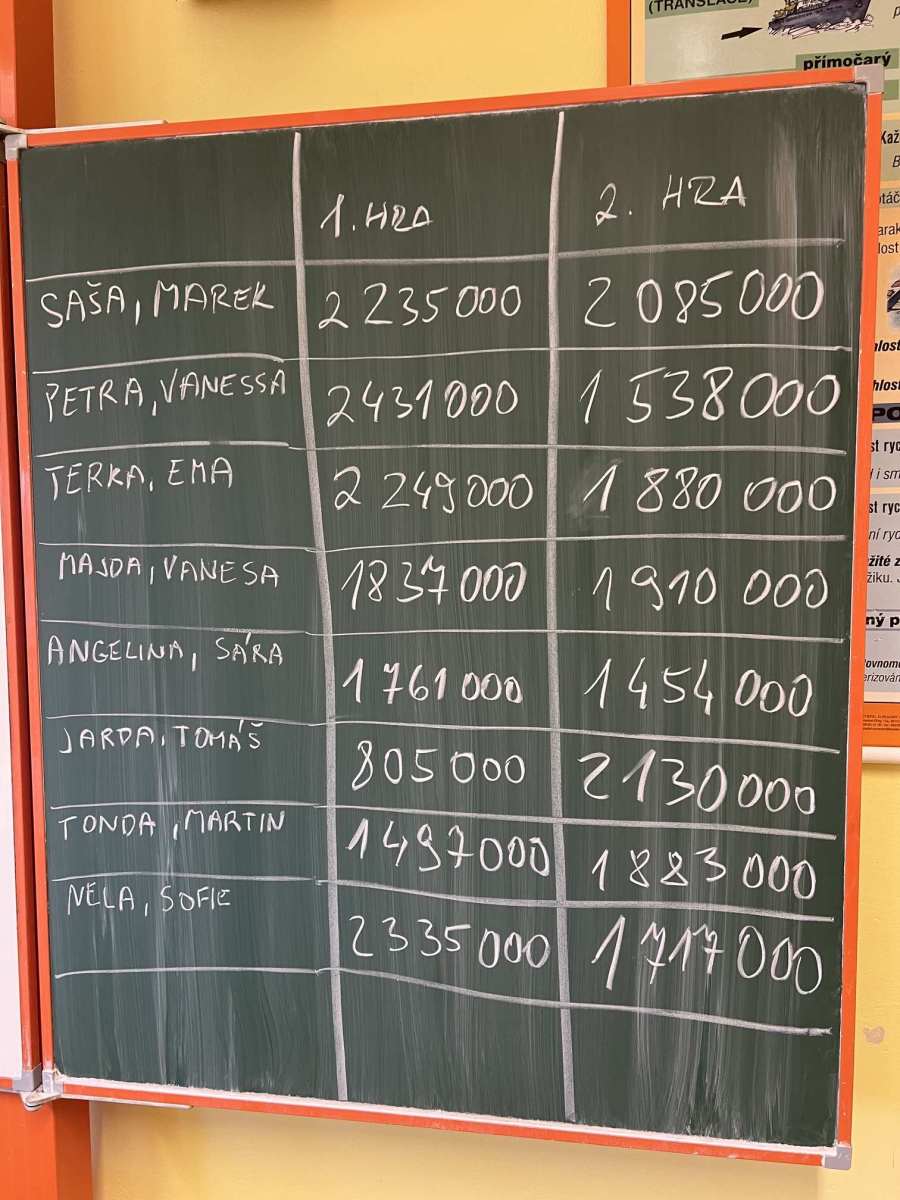 (TRANSLACE)
přímočarý
1. HRA 2. HRA
SAŠA, MAREK 2 235 000 2 085 000
PETRA, VANESSA 2 431 000 1 538 000
TERKA, EMA 2 249 000 1 880 000
MAJDA, VANESA 1 837 000 1 910 000
ANGELINA, SÁRA 1 761 000 1 454 000
JARDA, TOMÁŠ 805 000 2 130 000
TONDA, MARTIN 1 497 000 1 883 000
NELA, SOFIE 2 335 000 1 717 000